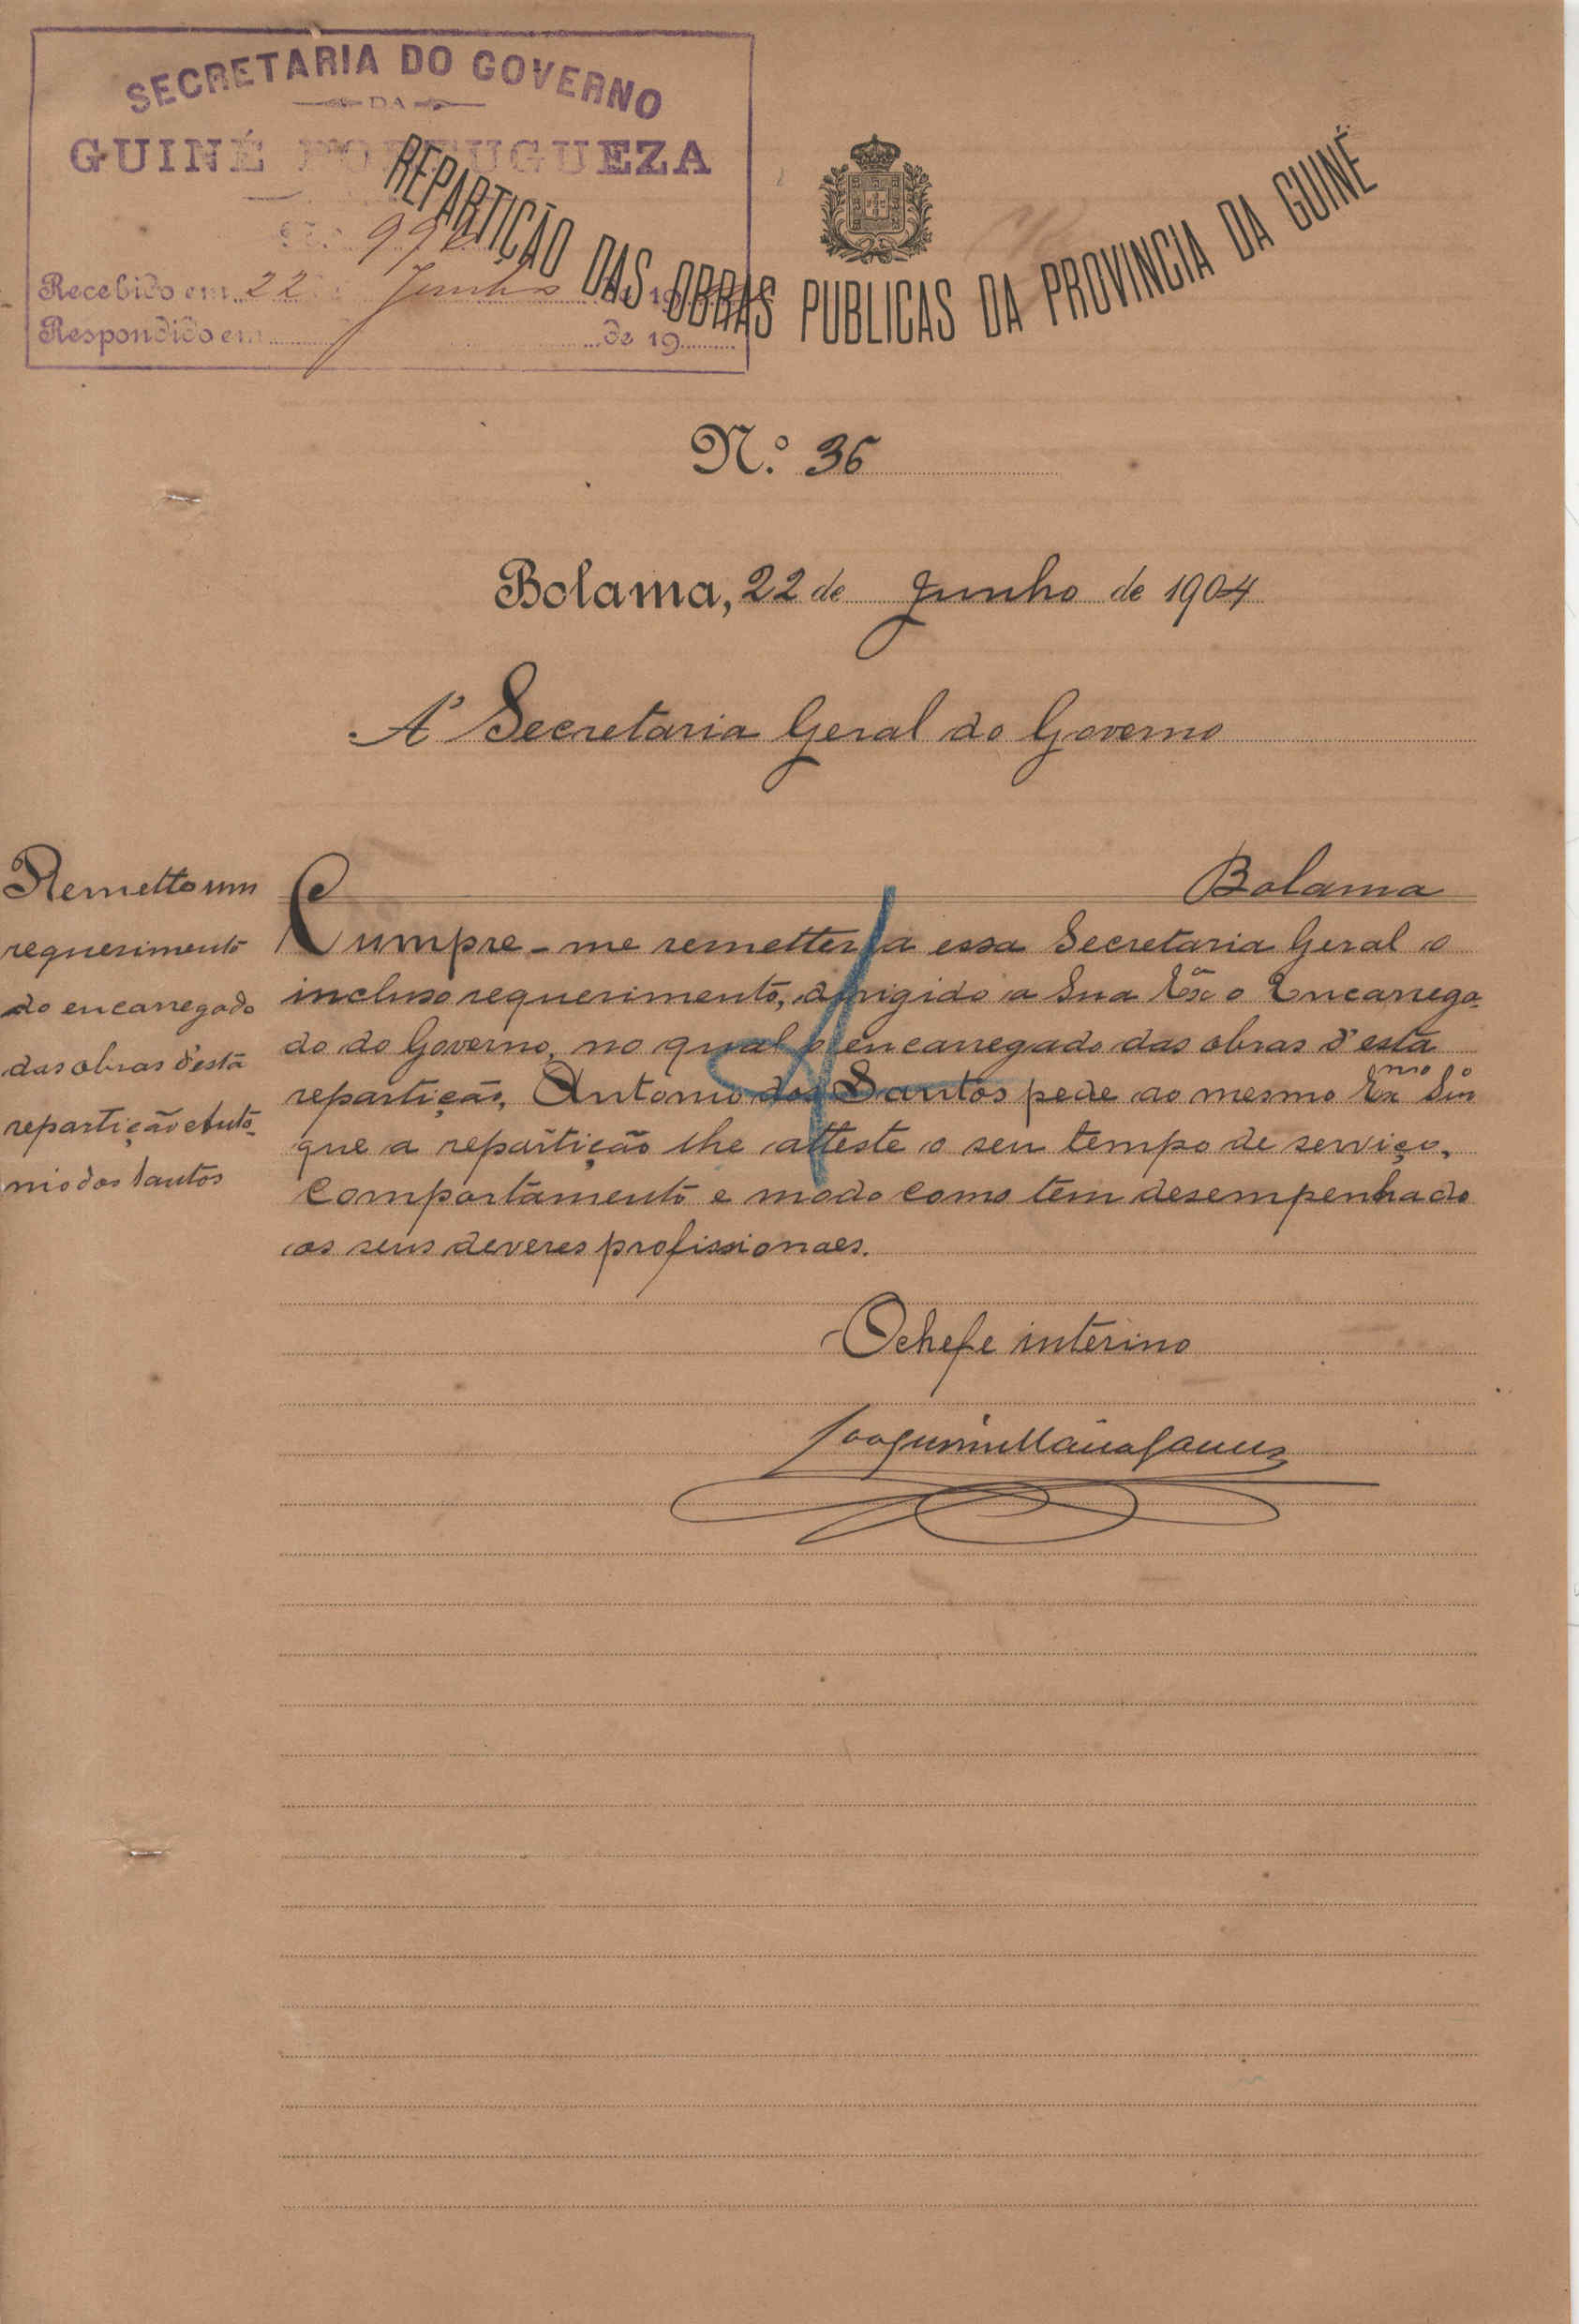 SECRETARIA DO GOVERNO
DA
GUINÉ PORTUGUEZA
Recebido em 22 de Junho de 19
Respondido em de 19
REPARTIÇÃO DAS OBRAS PUBLICAS DA PROVINCIA DA GUINÉ
N.º 36
Bolama, 22 de Junho de 1904
A' Secretaria Geral do Governo
Bolama
Remetto um
requerimento
do encarregado
das obras d'esta
repartição Anto-
nio dos Santos
Cumpre-me remetter a essa Secretaria Geral o
incluso requerimento, dirigido a Sua Exª o Encarrega-
do do Governo, no qual o encarregado das obras d'esta
repartição, Antonio dos Santos pede ao mesmo Exmo Snr
que a repartição lhe atteste o seu tempo de serviço,
comportamento e modo como tem desempenhado
os seus deveres profissionaes.
O chefe interino
Joaquim